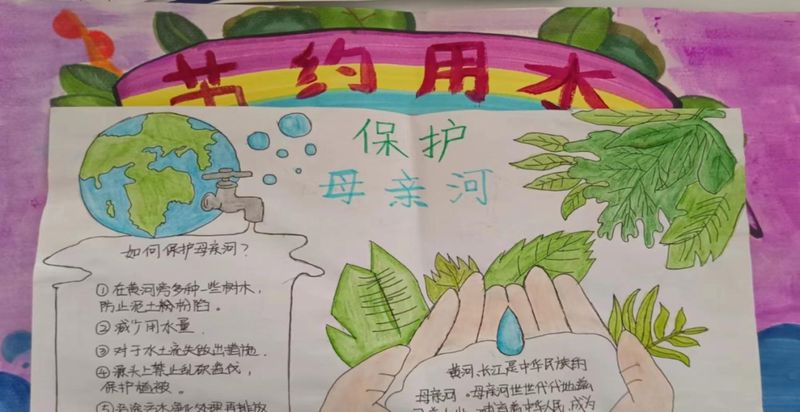 节约用水
保护
母亲河
如何保护母亲河？
①在黄河旁多种一些树木，
防止泥土粉粉陷。
②减少用水量。
③对于水土流失做出措施
④源头上禁止乱砍滥伐，
保护植被。
黄河、长江是中华民族的
母亲河。母亲河世世代代地